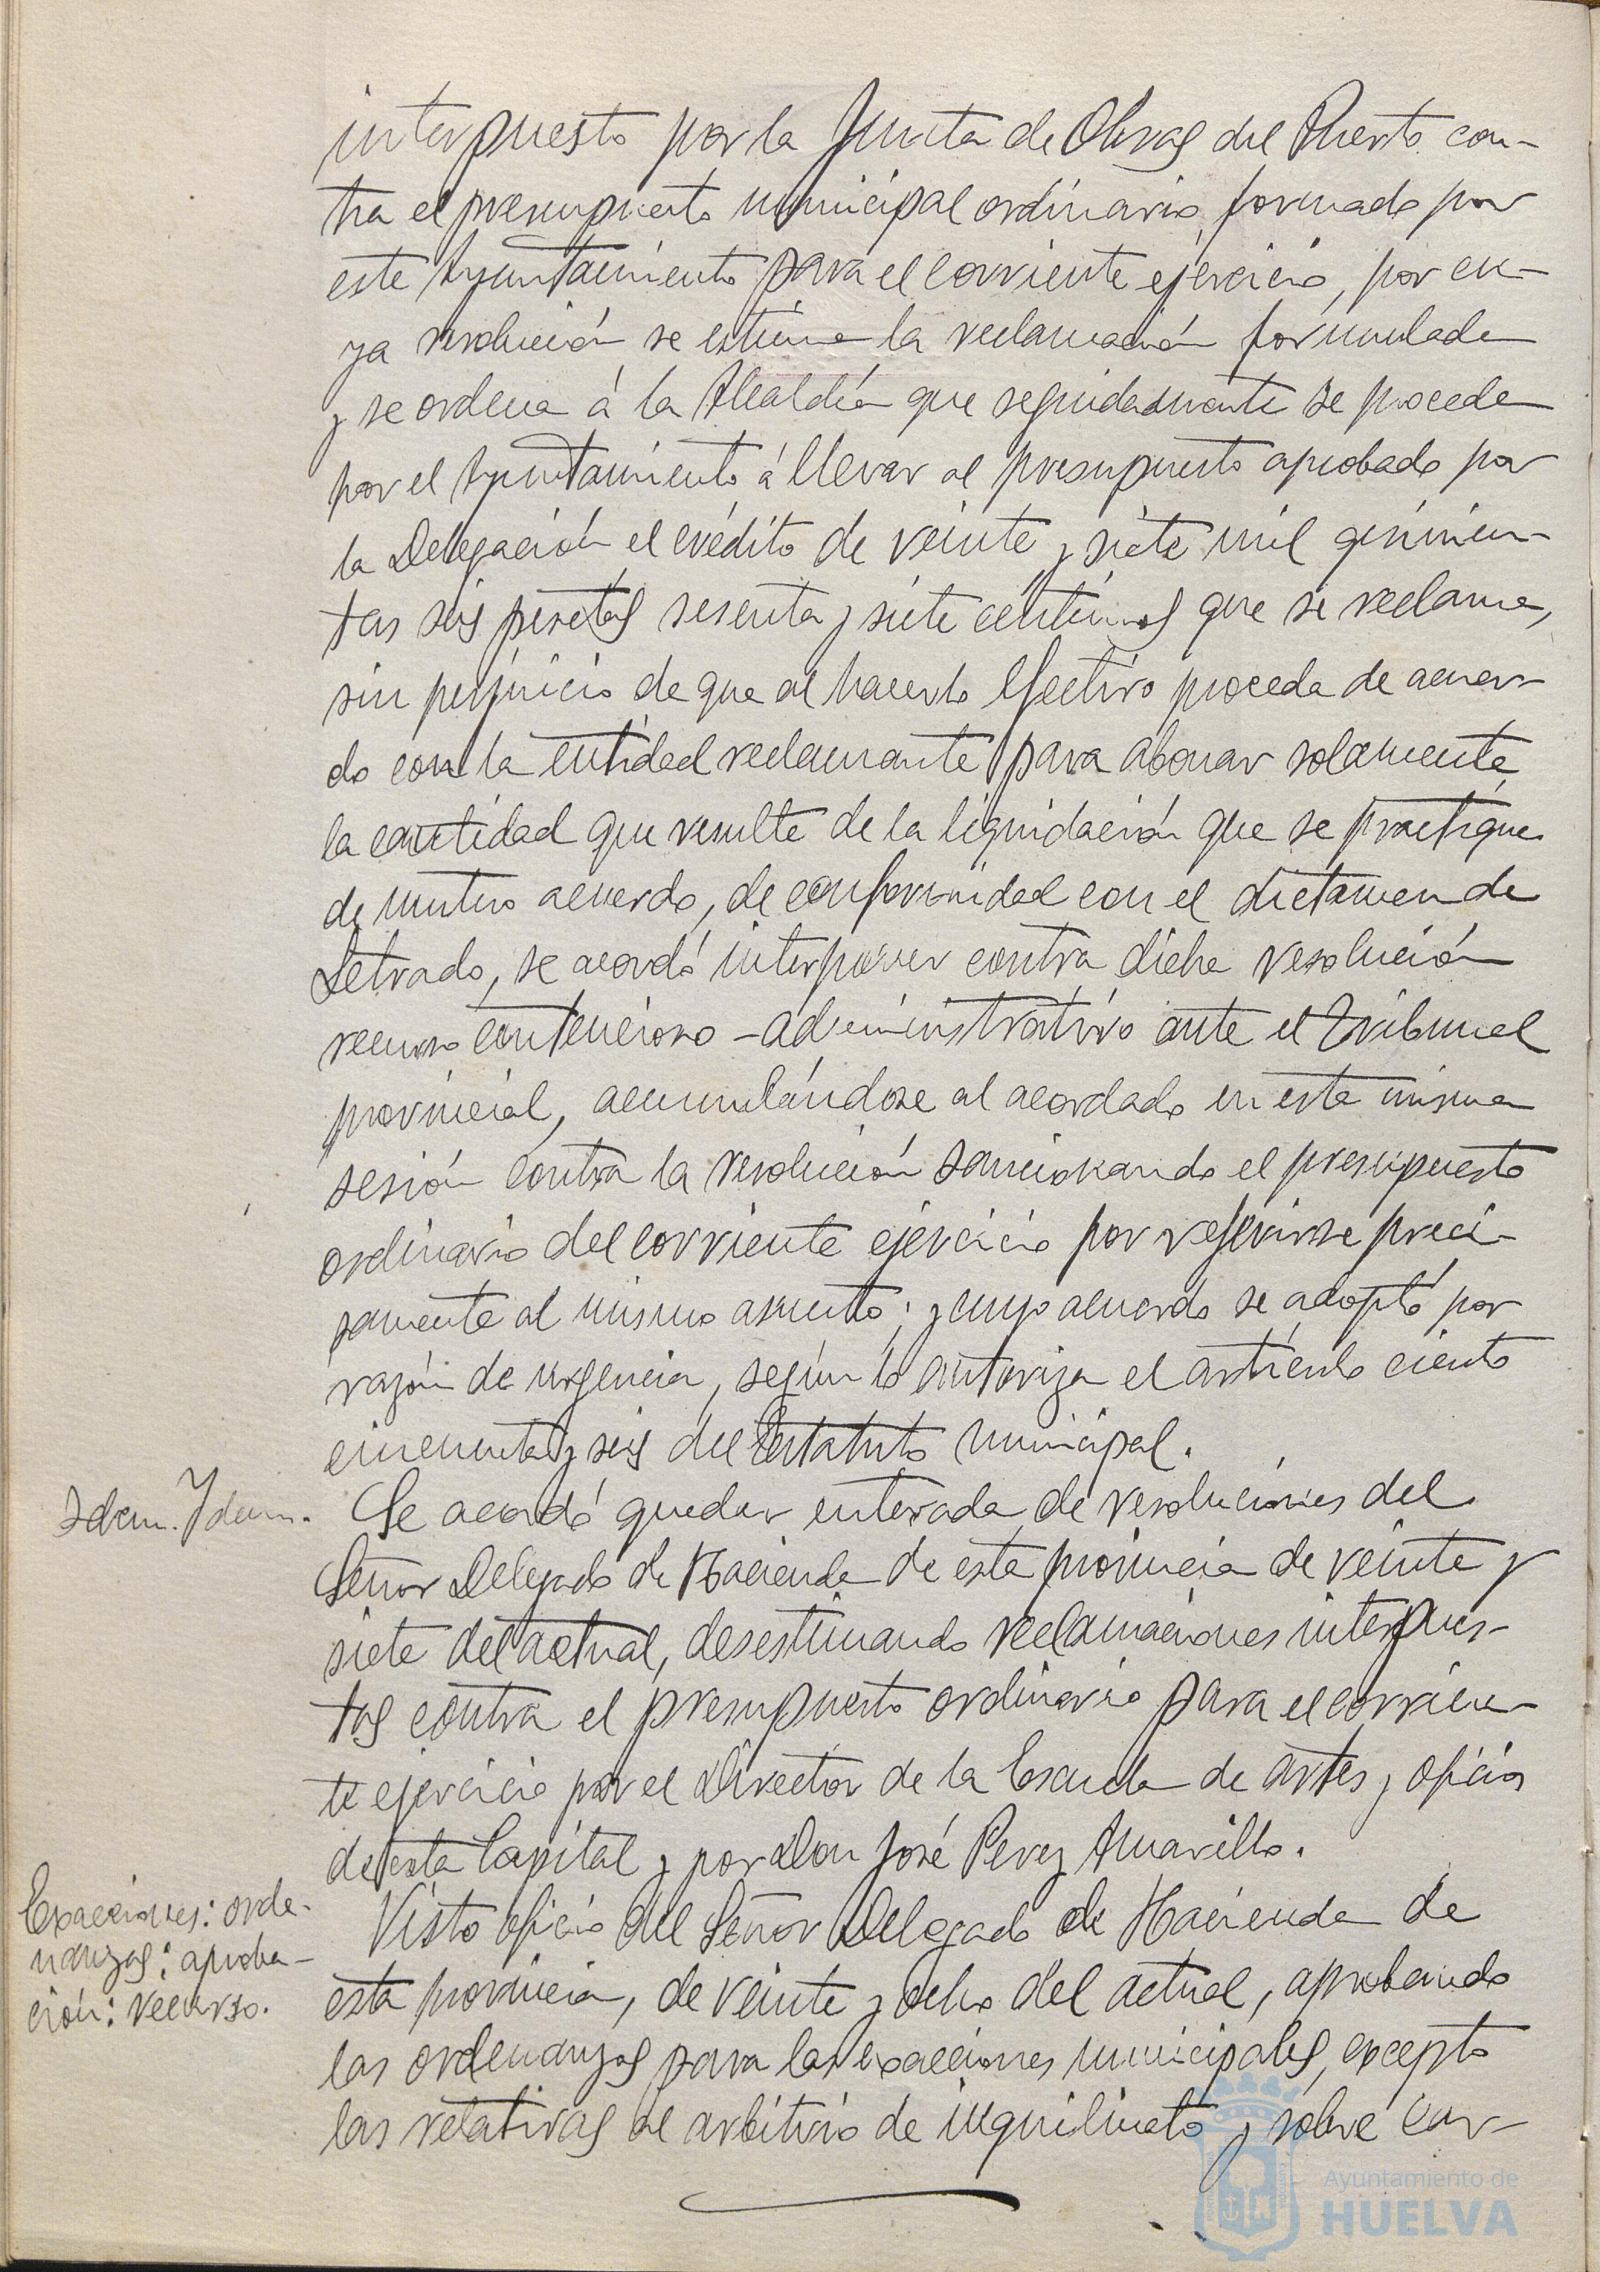 interpuesto por la Junta de Obras del Puerto con-
tra el presupuesto municipal ordinario formado por
este Ayuntamiento para el corriente ejercicio, por cu-
ya resolución se estima la reclamación formulada
y se ordena á la Alcaldía que seguidamente se proceda
por el Ayuntamiento á llevar al presupuesto aprobado por
la Delegación el crédito de veinte y siete mil quinien-
tas seis pesetas sesenta y siete céntimos que se reclama,
sin perjuicio de que al hacerlo efectivo proceda de acuer-
do con la entidad reclamante para abonar solamente
la cantidad que resulte de la liquidación que se practique
de mutuo acuerdo, de conformidad con el dictamen de
Letrado, se acordó interponer contra dicha resolución
recurso contencioso-administrativo ante el Tribunal
provincial, acumulándose al acordado en esta misma
sesión contra la resolución sancionando el presupuesto
ordinario del corriente ejercicio por referirse preci-
samente al mismo asunto; y cuyo acuerdo se adoptó por
razón de urgencia, según lo autoriza el artículo ciento
cincuenta y seis del Estatuto municipal.
Idem. Idem.
Se acordó quedar enterada de resoluciones del
Señor Delegado de Hacienda de esta provincia de veinte y
siete del actual, desestimando reclamaciones interpues-
tas contra el presupuesto ordinario para el corrien-
te ejercicio por el Director de la Escuela de artes y oficios
de esta Capital y por Don José Perez Amarillo.
Exacciones: orde-
nanzas: aproba-
ción: recurso.
Visto oficio del Señor Delegado de Hacienda de
esta provincia, de veinte y ocho del actual, aprobando
las ordenanzas para las exacciones municipales, excepto
las relativas al arbitrio de inquilinato y sobre car-
Ayuntamiento de
HUELVA